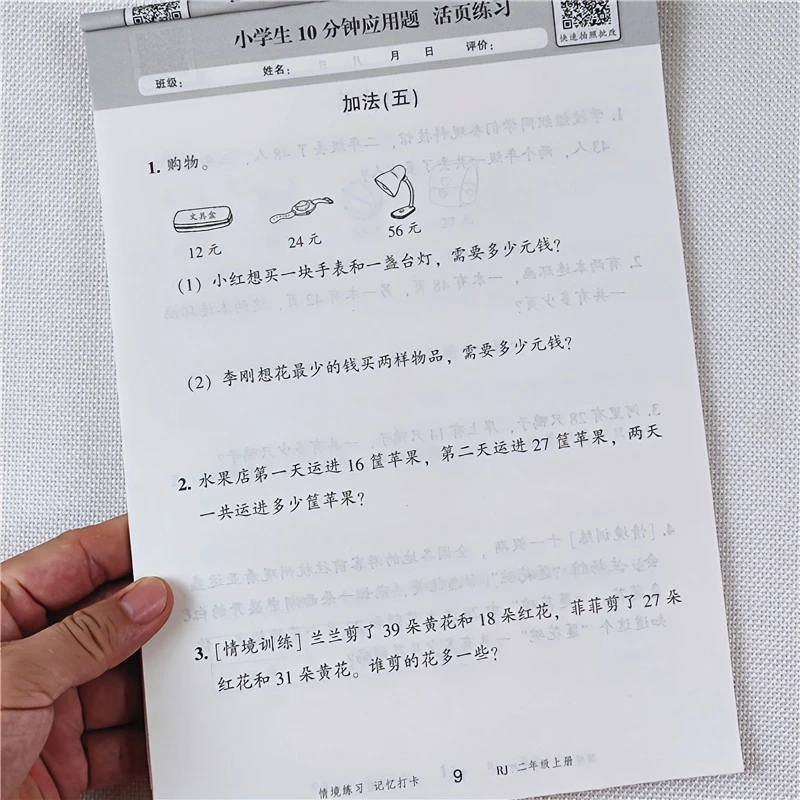 小学生10分钟应用题 活页练习
快速拍照批改
班级： 姓名： 月 日 评价：
加法(五)
1. 购物。
文具盒
12元 24元 56元
(1) 小红想买一块手表和一盏台灯，需要多少元钱？
(2) 李刚想花最少的钱买两样物品，需要多少元钱？
2. 水果店第一天运进16筐苹果，第二天运进27筐苹果，两天
一共运进多少筐苹果？
3. [情境训练] 兰兰剪了39朵黄花和18朵红花，菲菲剪了27朵
红花和31朵黄花。谁剪的花多一些？
情境练习 记忆打卡 9 RJ 二年级上册